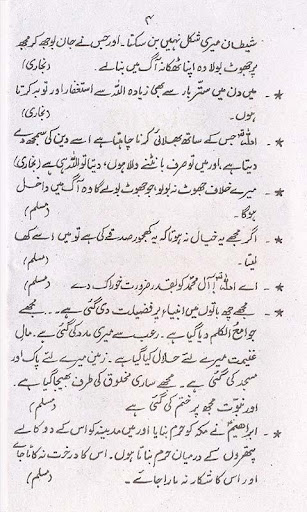 ۴
شیطان میری شکل نہیں بن سکتا۔ اور جس نے جان بوجھ کر مجھ
پر جھوٹ بولا وہ اپنا ٹھکانہ آگ میں بنا لے۔ (بخاری)
* ۔ میں دن میں ستر بار سے بھی زیادہ اللہ سے استغفار اور توبہ کرتا
ہوں۔ (بخاری)
* ۔ اللہ جس کے ساتھ بھلائی کرنا چاہتا ہے اسے دین کی سمجھ دے
دیتا ہے اور میں تو صرف بانٹنے والا ہوں، دیتا تو اللہ ہی ہے (بخاری)
* ۔ میرے خلاف جھوٹ نہ بولو، جو جھوٹ بولے گا وہ آگ میں داخل
ہوگا۔ (مسلم)
* ۔ اگر مجھے یہ خیال نہ ہوتا کہ یہ کھجور صدقے کی ہے تو میں اسے کھا
لیتا۔ (مسلم)
* ۔ اے اللہ! آل محمد کو بقدر ضرورت خوراک دے (مسلم)
* ۔ مجھے چھ باتوں میں انبیاء پر فضیلت دی گئی ہے۔۔۔ مجھے
جوامع الکلم دیا گیا ہے۔ رعب سے میری مدد کی گئی ہے۔ مال
غنیمت میرے لئے حلال کیا گیا ہے۔ زمین میرے لئے پاک اور
مسجد کی گئی ہے۔ مجھے ساری مخلوق کی طرف بھیجا گیا ہے۔
اور نبوت مجھ پر ختم کی گئی ہے (مسلم)
* ۔ ابراھیمؑ نے مکہ کو حرم بنایا اور میں مدینہ کو اس کے دو کالے
پتھروں کے درمیان حرم بناتا ہوں۔ اس کا درخت نہ کاٹا جائے
اور اس کا شکار نہ مارا جائے۔ (مسلم)